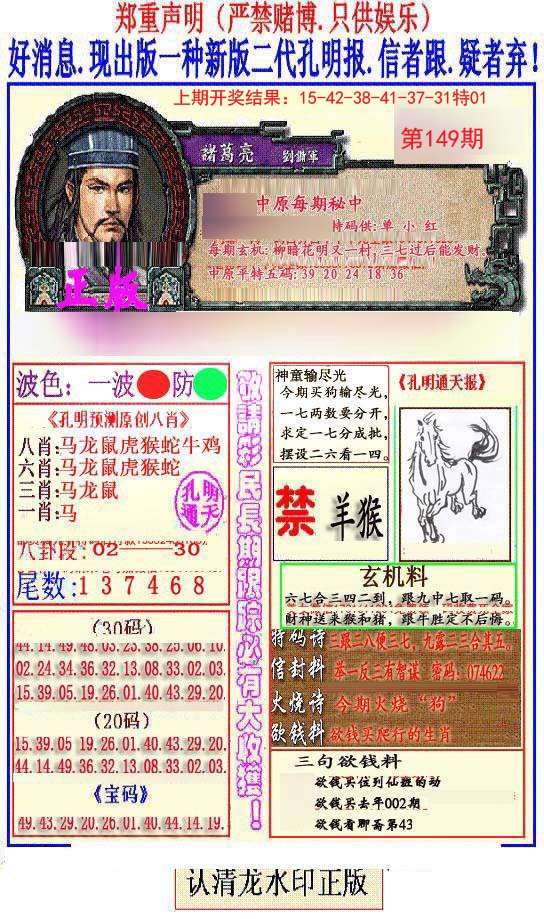 郑重声明（严禁赌博.只供娱乐）
好消息.现出版一种新版二代孔明报.信者跟.疑者弃!
上期开奖结果：15-42-38-41-37-31特01
第149期
諸葛亮 劉備軍
中原每期秘中
持码供:单 小 红
每期玄机:柳暗花明又一村,三七过后能发财.
中原平特五码:39 20 24 18 36
正版
波色：一波 防
《孔明预测原创八肖》
八肖:马龙鼠虎猴蛇牛鸡
六肖:马龙鼠虎猴蛇
三肖:马龙鼠
一肖:马
孔明
通天
八卦段:02——30
尾数:137468
(30码)
44.14.49.48.03.23.38.25.06.10.
02.24.34.36.32.13.08.33.02.03.
15.39.05.19.26.01.40.43.29.20.
(20码)
15.39.05 19.26.01.40.43.29.20.
44.14.49.36.32.13.08.33.02.03.
《宝码》
49.43.29.20.26.01.40.44.14.19.
敬請彩民長期跟踪必有大收獲！
神童输尽光
今期买狗输尽光,
一七两数要分开,
求定一七分成批,
摆设二六看一四。
《孔明通天报》
禁 羊猴
玄机料
六七合三四二到，跟九中七取一码。
财神送来猴和猪，跟牛胜定不后悔。
特码诗 三跟二八便三七，九露二三合其五。
信封料 举一反三有智谋 密码：074622
火烧诗 今期火烧“狗”
欲钱料 欲钱买爬行的生肖
三句欲钱料
欲钱买去年002期
欲钱看聊斋第43
认清龙水印正版